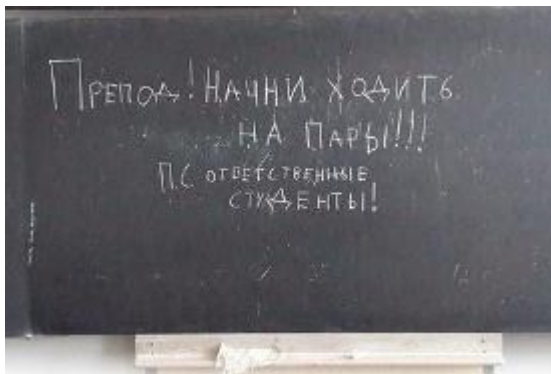 Препод! Начни ходить
на пары!!!
П.С ответственные
студенты!